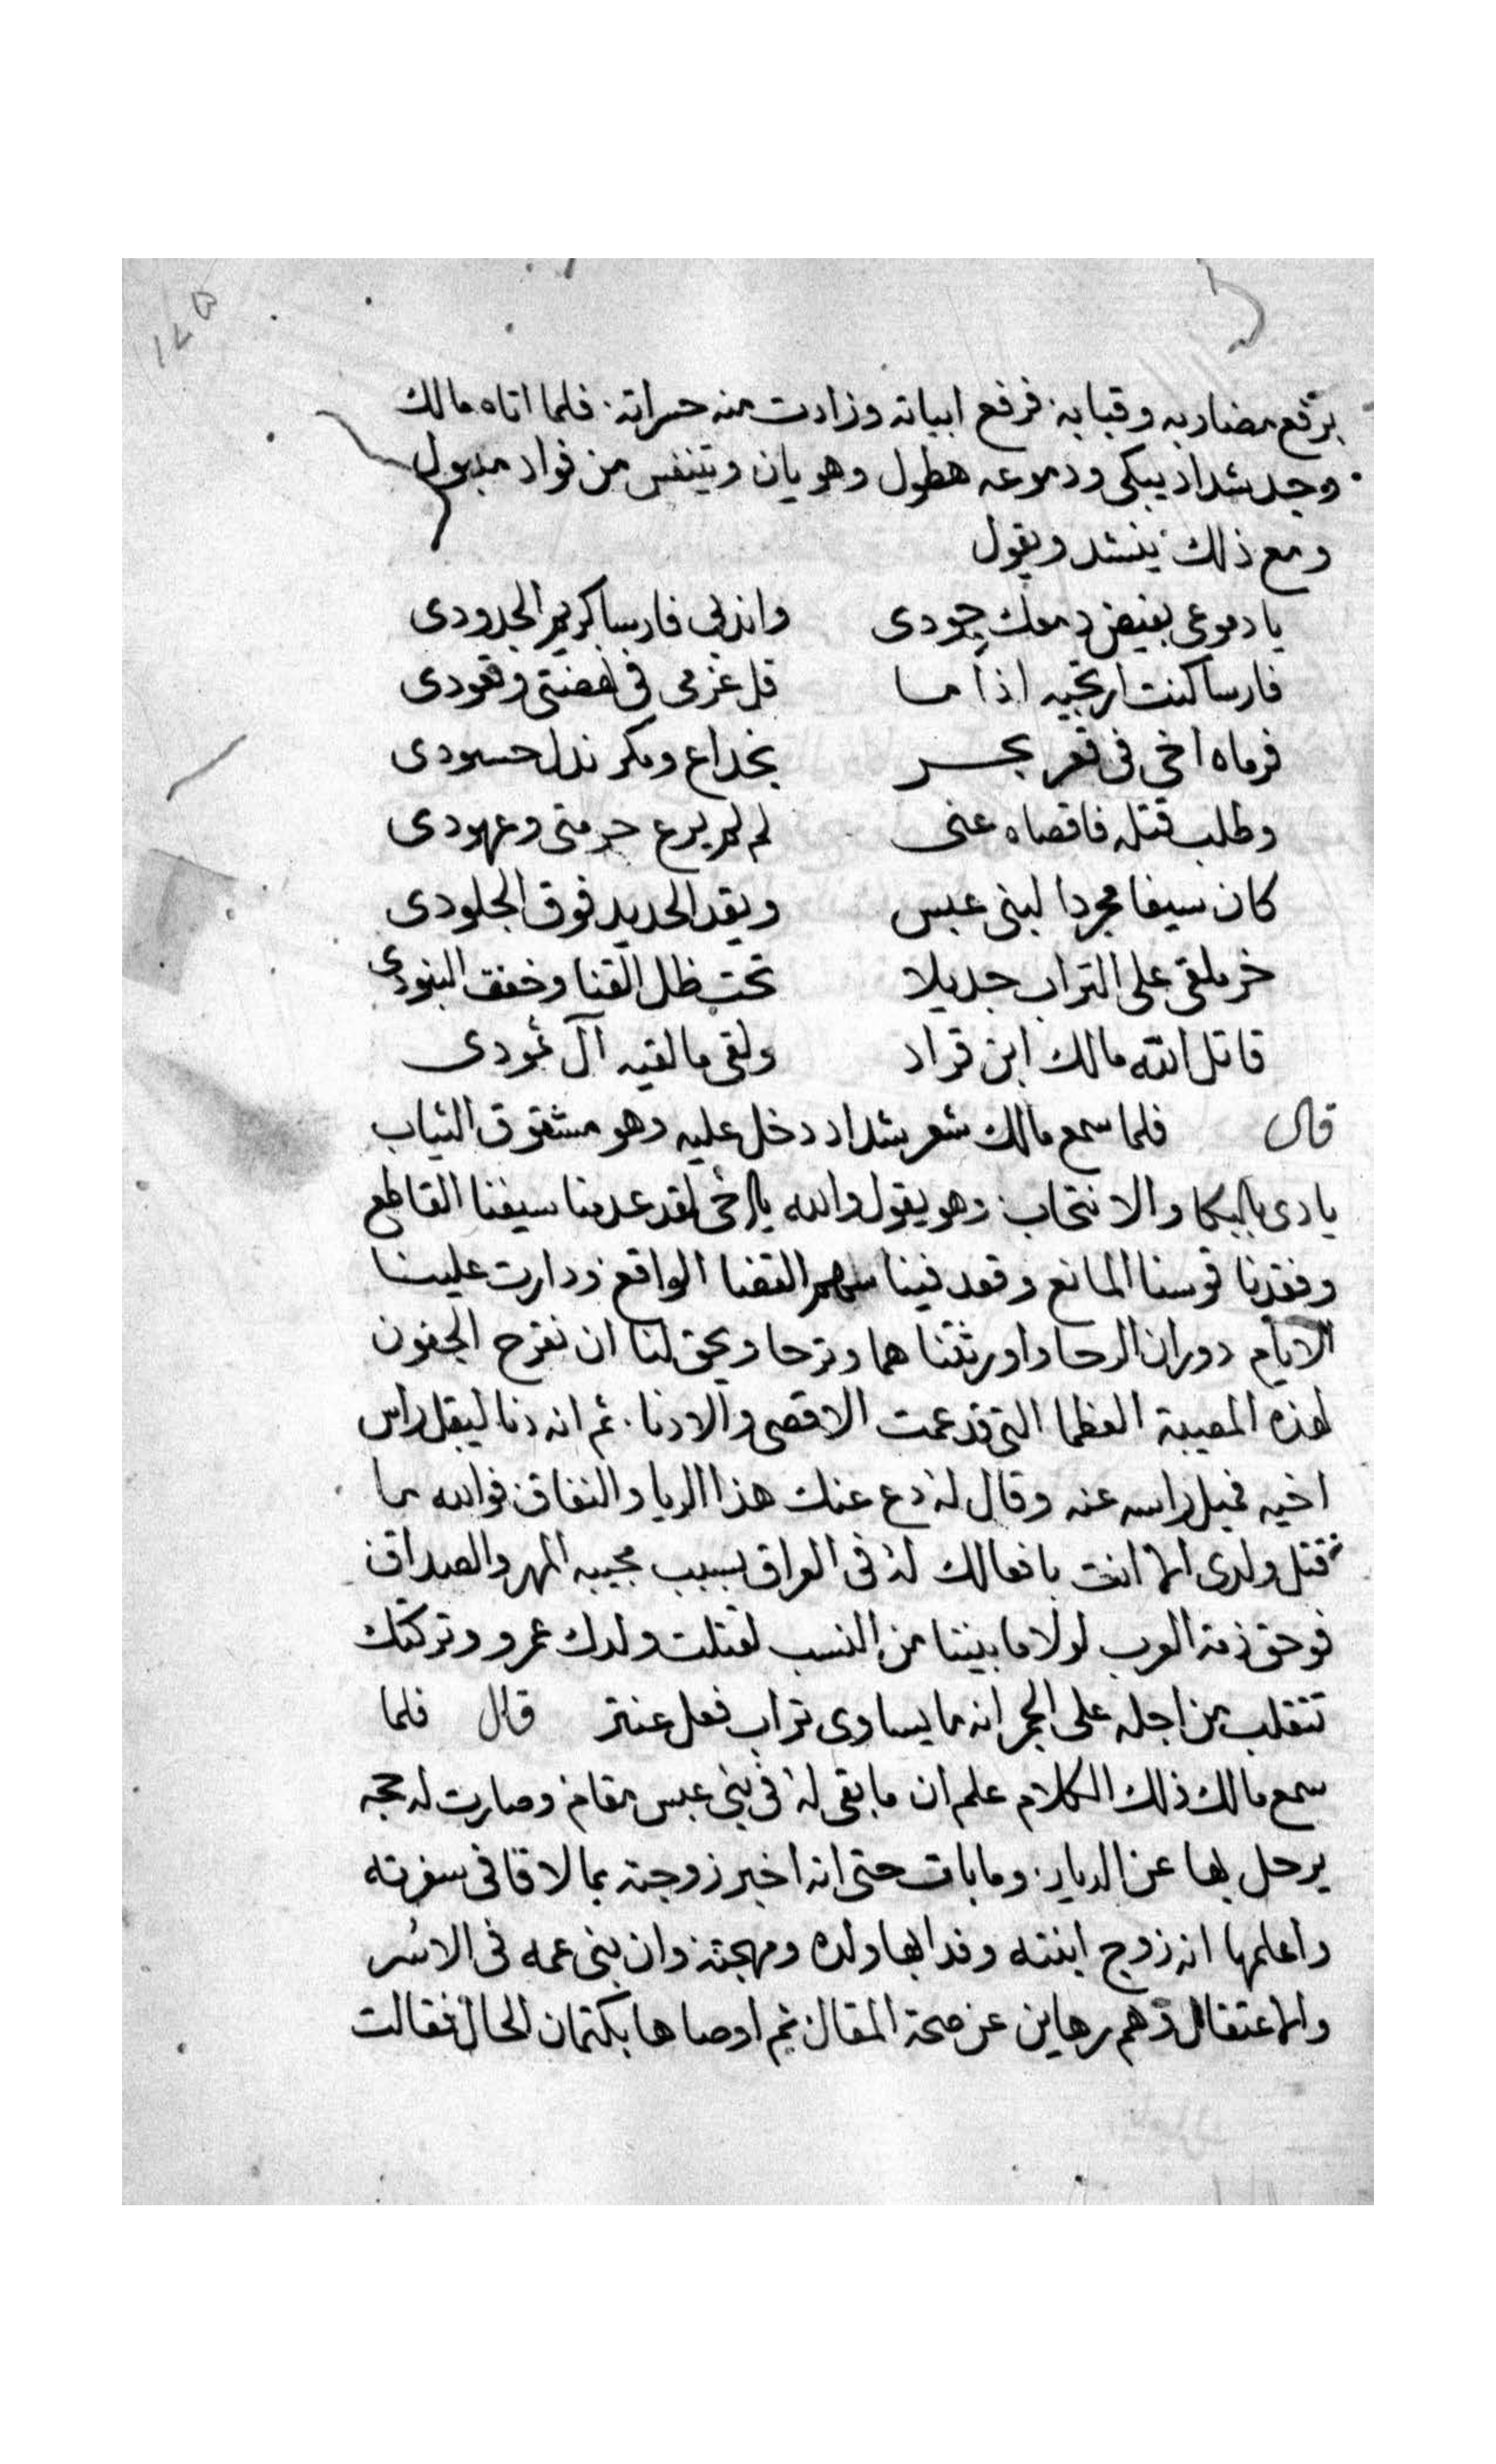 برفع مضاربه وقبابه فرفع ابياته وزادت منه حسراته فلما اتاه مالك
وجد شداد يبكى ودموعه هطول وهو يان ويتنفس من فواد مذبول
ومع ذلك ينشد ويقول
يا دموعى بفيض دمعك جودى واندبى فارسا كريم الجدودى
فارسا كنت ارتجيه اذا ما قل عزمى فى نهضتى وقعودى
فرماه اخى فى قعر بحر بخداع ومكر نذل حسودى
وطلب قتله فاقصاه عنى لم يرع حرمتى وعهودى
كان سيفا مجردا لبنى عبس ويقد الحديد فوق الجلودى
خر ملقى على التراب جديلا تحت ظل القنا وخفق البنودى
قاتل الله مالك ابن قراد ولقى ما لقيه آل ثمودى
قال فلما سمع مالك شعر شداد دخل عليه وهو مشقوق الثياب
يادى بالبكا والانتحاب وهو يقول والله يا اخى لقد عدمنا سيفنا القاطع
وفقدنا قوسنا المانع وقعد فينا سهم القضا الواقع ودارت علينا
الايام دوران الرحا واورثتنا هما وترحا ويحق لنا ان نقرح الجفون
لهذه المصيبة العظما التى قد عمت الاقصى والادنا ثم انه دنا ليقبل راس
اخيه فميل راسه عنه وقال له دع عنك هذا الريا والنفاق فوالله ما
قتل ولدى الا انت بافعالك له فى العراق بسبب مجيبه المهر والصداق
فوحق ذمة العرب لولا ما بيننا من النسب لقتلت ولدك عمرو وتركتك
تتقلب من اجله على الجمر انه ما يساوى تراب نعل عنتر قال فلما
سمع مالك ذلك الكلام علم ان ما بقى له فى بنى عبس مقام وصارت له حجه
يرحل بها عن الديار وما بات حتى انه اخبر زوجته بما لاقا فى سفرته
واعلمها انه زوج ابنته وفدا بها ولده ومهجته وان بنى عمه فى الاسر
والاعتقال وهم رهاين عن صحة المقال ثم اوصاها بكتمان الحال فقالت